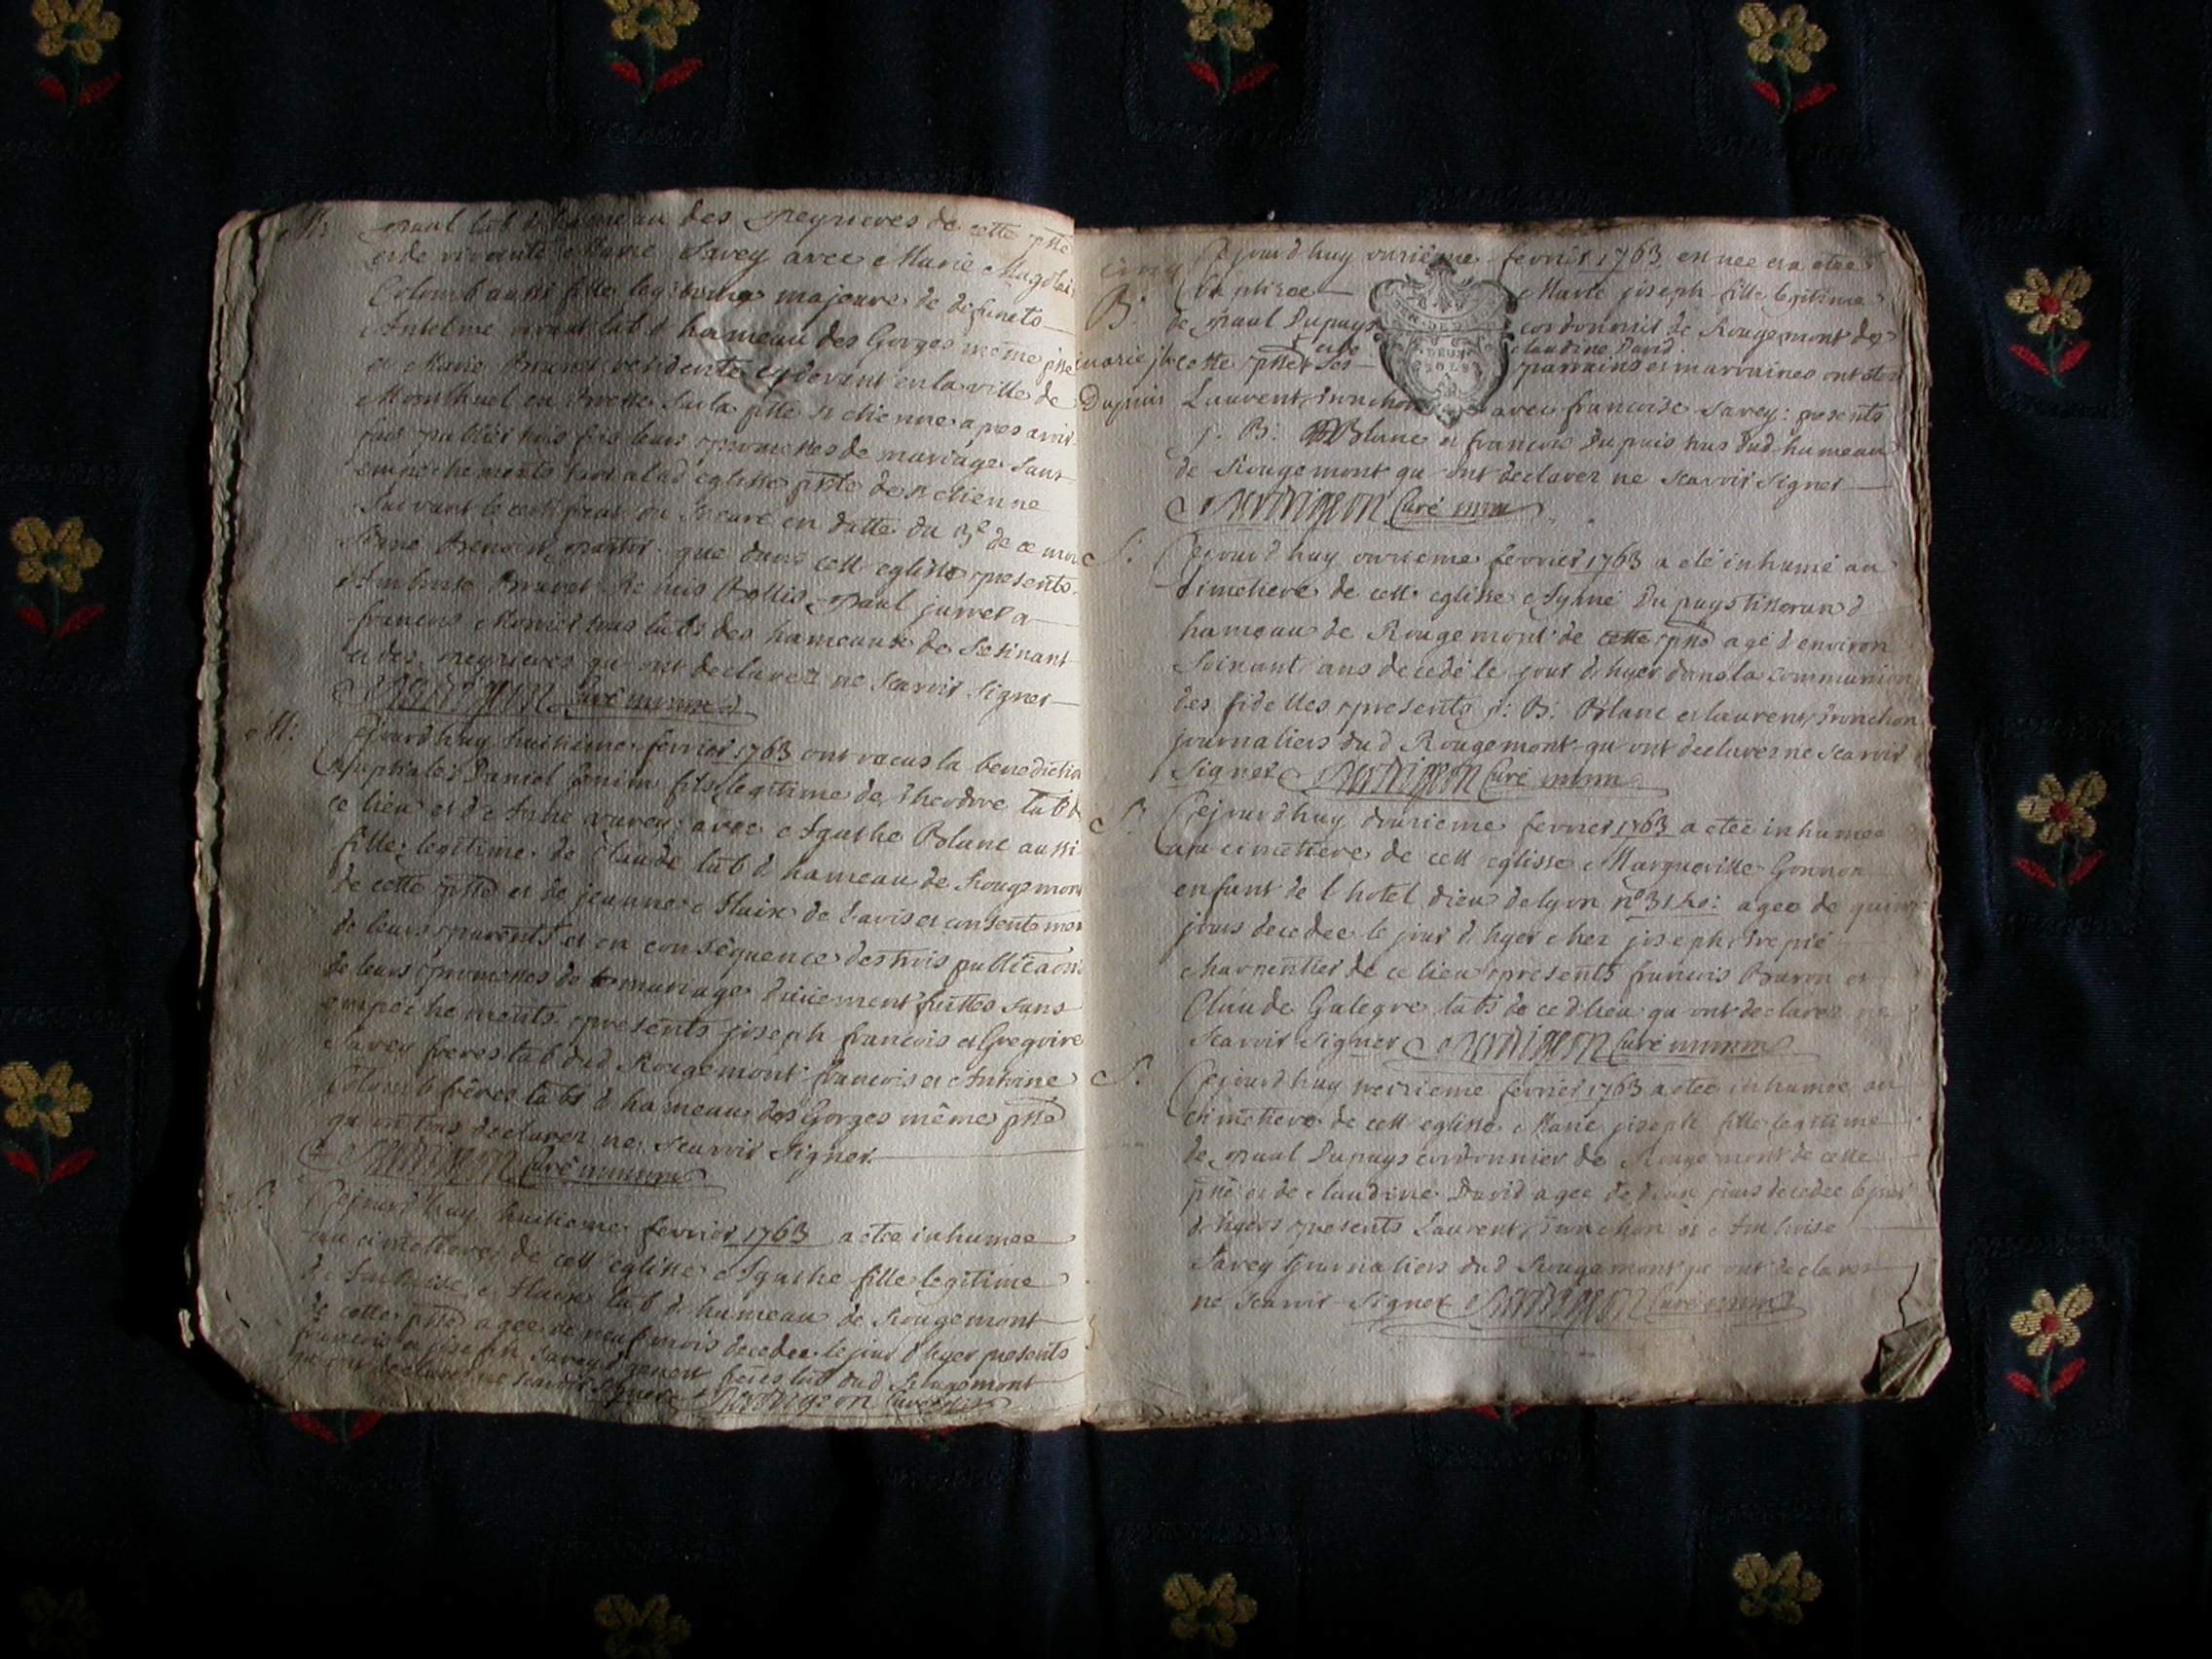 M:
paul lab d hameau des peyrieres de cette psse
et de vivante Marie Savey avec Marie Magdelai
Colomb aussi fille legitime majeure de defuncts
Antelme vivant lab d hameau des Gorges même psse
et Marie residente cydevant en la ville de
Montluel en Bresse sur la psse st etienne apres avoir
fait publier trois fois leurs promesses de mariage sans
empechements tant a lad eglise psse de st etienne
suivant le certificat du Sr curé en datte du 3e de ce mois
que dans cette eglise presents
Ambroise paul
francois tous labrs des hameaux de
et des peyrieres qui ont declarez ne scavoir signer
curé
M:
Cejourd'huy huitieme fevrier 1763 ont recus la benediction
nuptiale Daniel fils legitime de theodore lab d
ce lieu et de Anne avec Agathe Blanc aussi
fille legitime de Claude lab d hameau de Rougemont
de cette psse et de jeanne de l'avis et consentement
de leurs parents et en conséquence des trois publications
de leurs promesses de mariage duement faittes sans
empechements presents joseph francois et Gregoire
Savey freres lab dud Rougemont francois et Antoine
Colomb frères labrs d hameau des Gorges même psse
qui ont tous declarez ne scavoir signer.
curé
S:
Cejourd'huy huitieme fevrier 1763 a etee inhumee
au cimetiere de cett eglise Agathe fille legitime
de lab d hameau de Rougemont
de cette psse agee de neuf mois decedee le jour d'hyer presents
francois et joseph Savey freres lab dud Rougemont
qui ont declarez ne scavoir signer curé
cinq
B:
marie jh
Dupuis
Cejourd'huy onzième fevrier 1763 est nee et a etee
baptisee Marie joseph fille legitime
de paul Dupuys cordonnier de Rougemont de
et de claudine David.
cette psse ses parrains et marraines ont etez
Laurent Tronchon avec francoise Savey: presents
j. B: Blanc et francois Dupuis tous dud hameau
de Rougemont qui ont declarez ne scavoir signer
curé
S:
Cejourd'huy onzieme fevrier 1763 a eté inhumé au
cimetiere de cett eglise Aymé Dupuys tisseran d
hameau de Rougemont de cette psse agé d environ
soixant ans decedé le jour d'hyer dans la communion
des fidelles presents j: B: Blanc et laurent Tronchon
journaliers dud Rougemont qui ont declarez ne scavoir
signer curé
S:
Cejourd'huy douzieme fevrier 1763 a etee inhumee
au cimetiere de cett eglise Margueritte Gonnon
enfant de l hotel dieu de lyon agee de quinze
jours decedee le jour d'hyer chez joseph
charpentier de ce lieu presents francois Baron et
Claude Galegre labrs de ced lieu qui ont declarez ne
scavoir signer curé
S:
Cejourd'huy treizieme fevrier 1763 a etee inhumee au
cimetiere de cett eglise Marie joseph fille legitime
de paul Dupuys cordonnier de Rougemont de cette
psse et de claudine David agee de deux jours decedee le jour
d'hyers presents Laurent Tronchon et Ambroise
Savey journaliers dud Rougemont qui ont declarez
ne scavoir signer curé